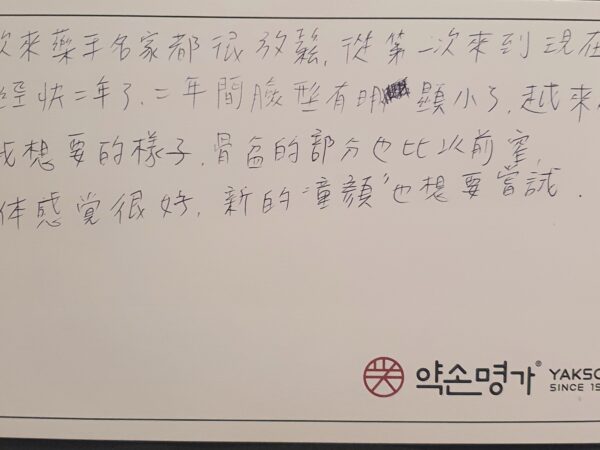 次來藥手名家都很放鬆,從第一次來到現在
經快二年了,二年間臉型有明顯小了,越來
我想要的樣子,骨盆的部分也比以前窄,
体感覺很好,新的"童顏"也想要嘗試.
약손명가®
YAKSO
SINCE 19